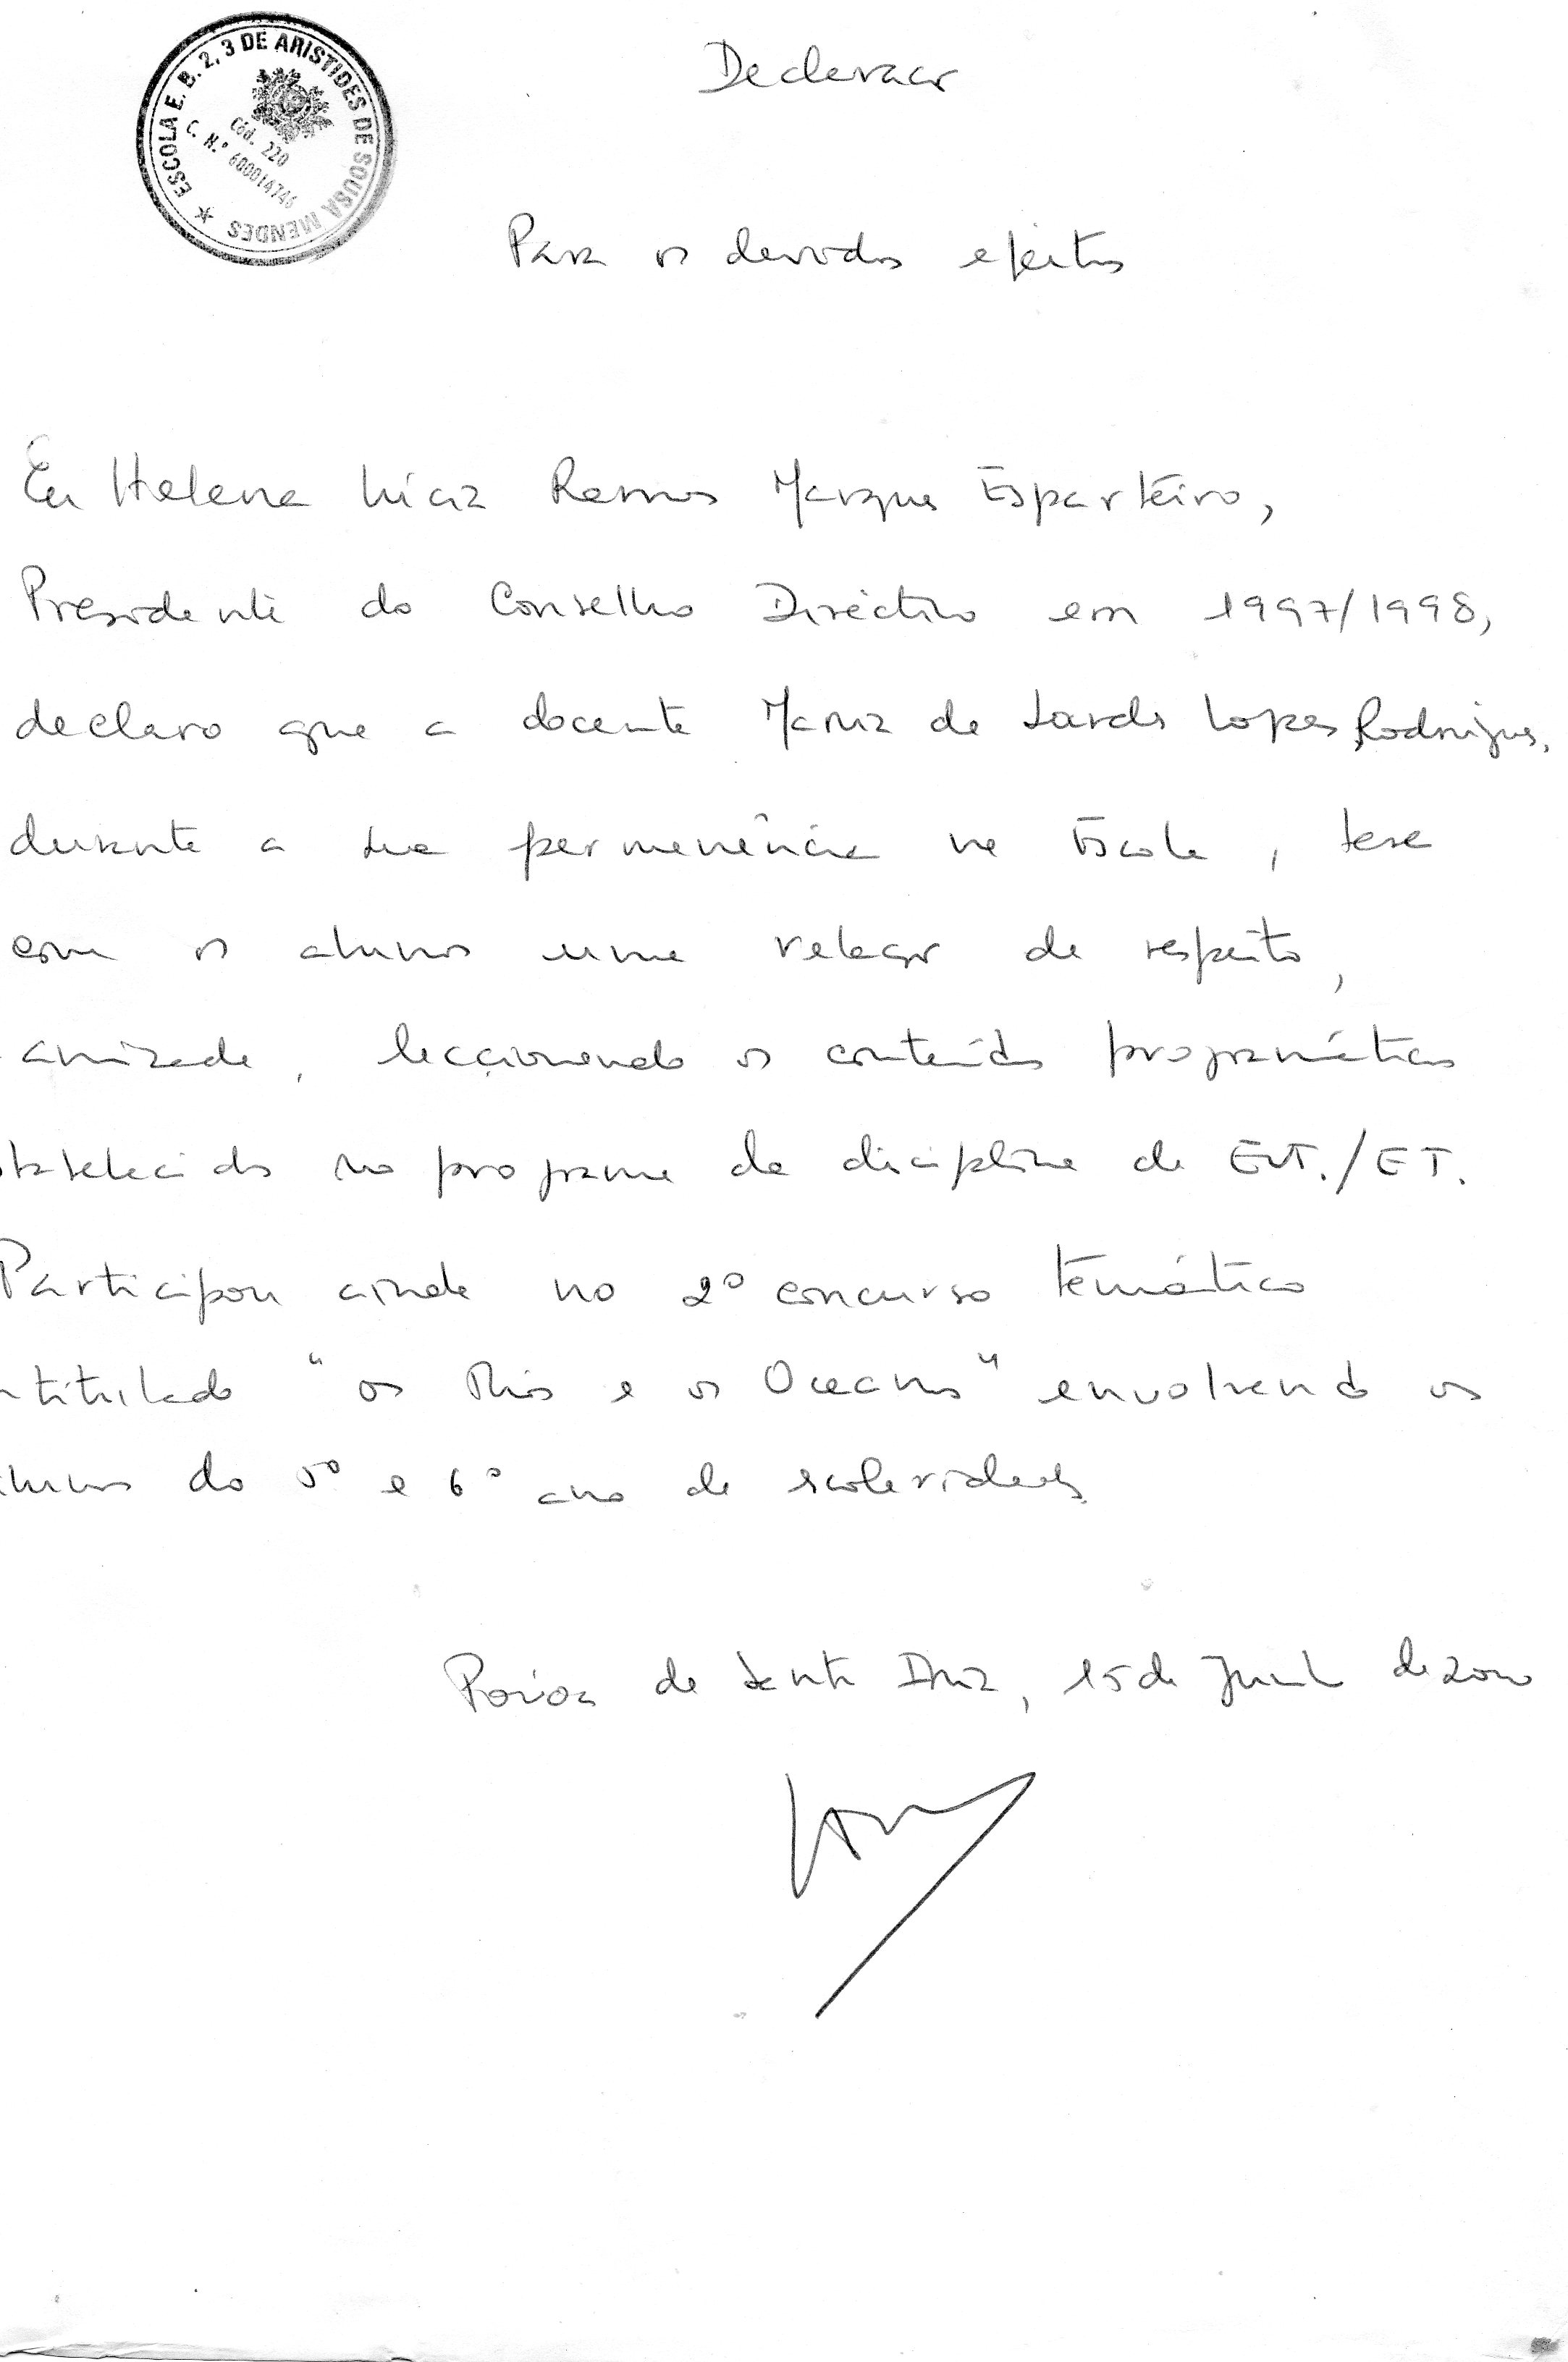 ESCOLA E. B. 2, 3 DE ARISTIDES DE SOUSA MENDES ★
Cód. 220
C. N.º 600014746
Declaração
Para os devidos efeitos
Eu Helena Ramos Marques Esparteiro,
Presidente do Conselho Directivo em 1997/1998,
declaro que a docente Maria de Lurdes Lopes Rodrigues,
durante a sua permanência na Escola, teve
com os alunos uma relação de respeito,
amizade, leccionando os conteúdos programáticos
stabelecidos no programa da disciplina de EVT./ET.
Participou ainda no 2º concurso temático
ntitulado "os Rios e os Oceanos" envolvendo os
lunos do 5º e 6º ano de escolaridade.
Póvoa de Santa Iria, 15 de de 2000